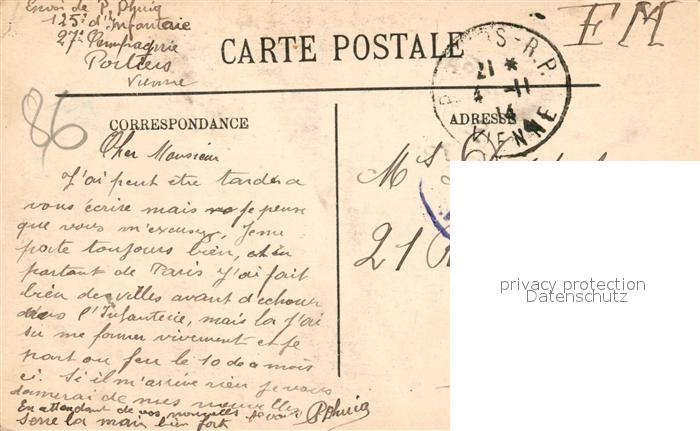 Envoi de P. Dhuig
125e d'Infanterie
27e Compagnie
Poitiers
Vienne
CARTE POSTALE
FM
POITIERS-R.P.
21 *
4 -11
14
VIENNE
86
CORRESPONDANCE
ADRESSE
Cher Monsieur
J'ai peut être tardé a
vous écrire mais je pense
que vous m'excusez, Je me
porte toujours bien, et en
partant de Paris J'ai fait
bien des villes avant d'echouer
dans l'Infanterie, mais la J'ai
su me former vivement et je
part au feu le 10 de a mois
ci. Si il m'arrive rien je vous
donnerai de mes nouvelles
En attendant de vos nouvelles
Serre la main bien fort
P Dhuig
21
privacy protection
Datenschutz